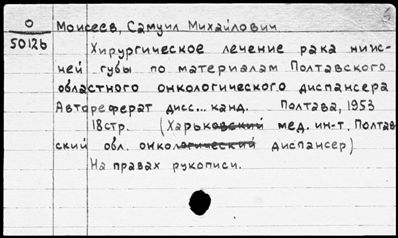 О
50126
Моисеев, Самуил Михайлович
Хирургическое лечение рака ниж-
ней губы по материалам Полтавского
областного онкологического диспансера
Автореферат дисс... канд. Полтава, 1953
18стр. (Харьковский мед. ин-т. Полтав
ский обл. онкологический диспансер)
На правах рукописи.